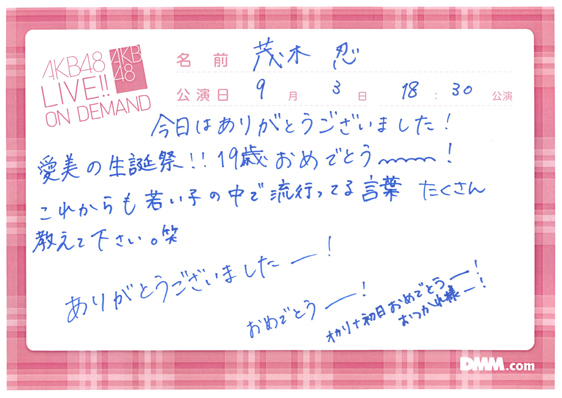 AKB48
LIVE!!
ON DEMAND
AKB
48
名前 茂木 忍
公演日 9月 3日 18:30 公演
今日はありがとうございました!
愛美の生誕祭!!19歳おめでとう〜〜〜!
これからも若い子の中で流行ってる言葉 たくさん
教えて下さい。笑
ありがとうございましたー!
おめでとうー!
オカリナ初日おめでとうー!
おつかれ様ー!
DMM.com